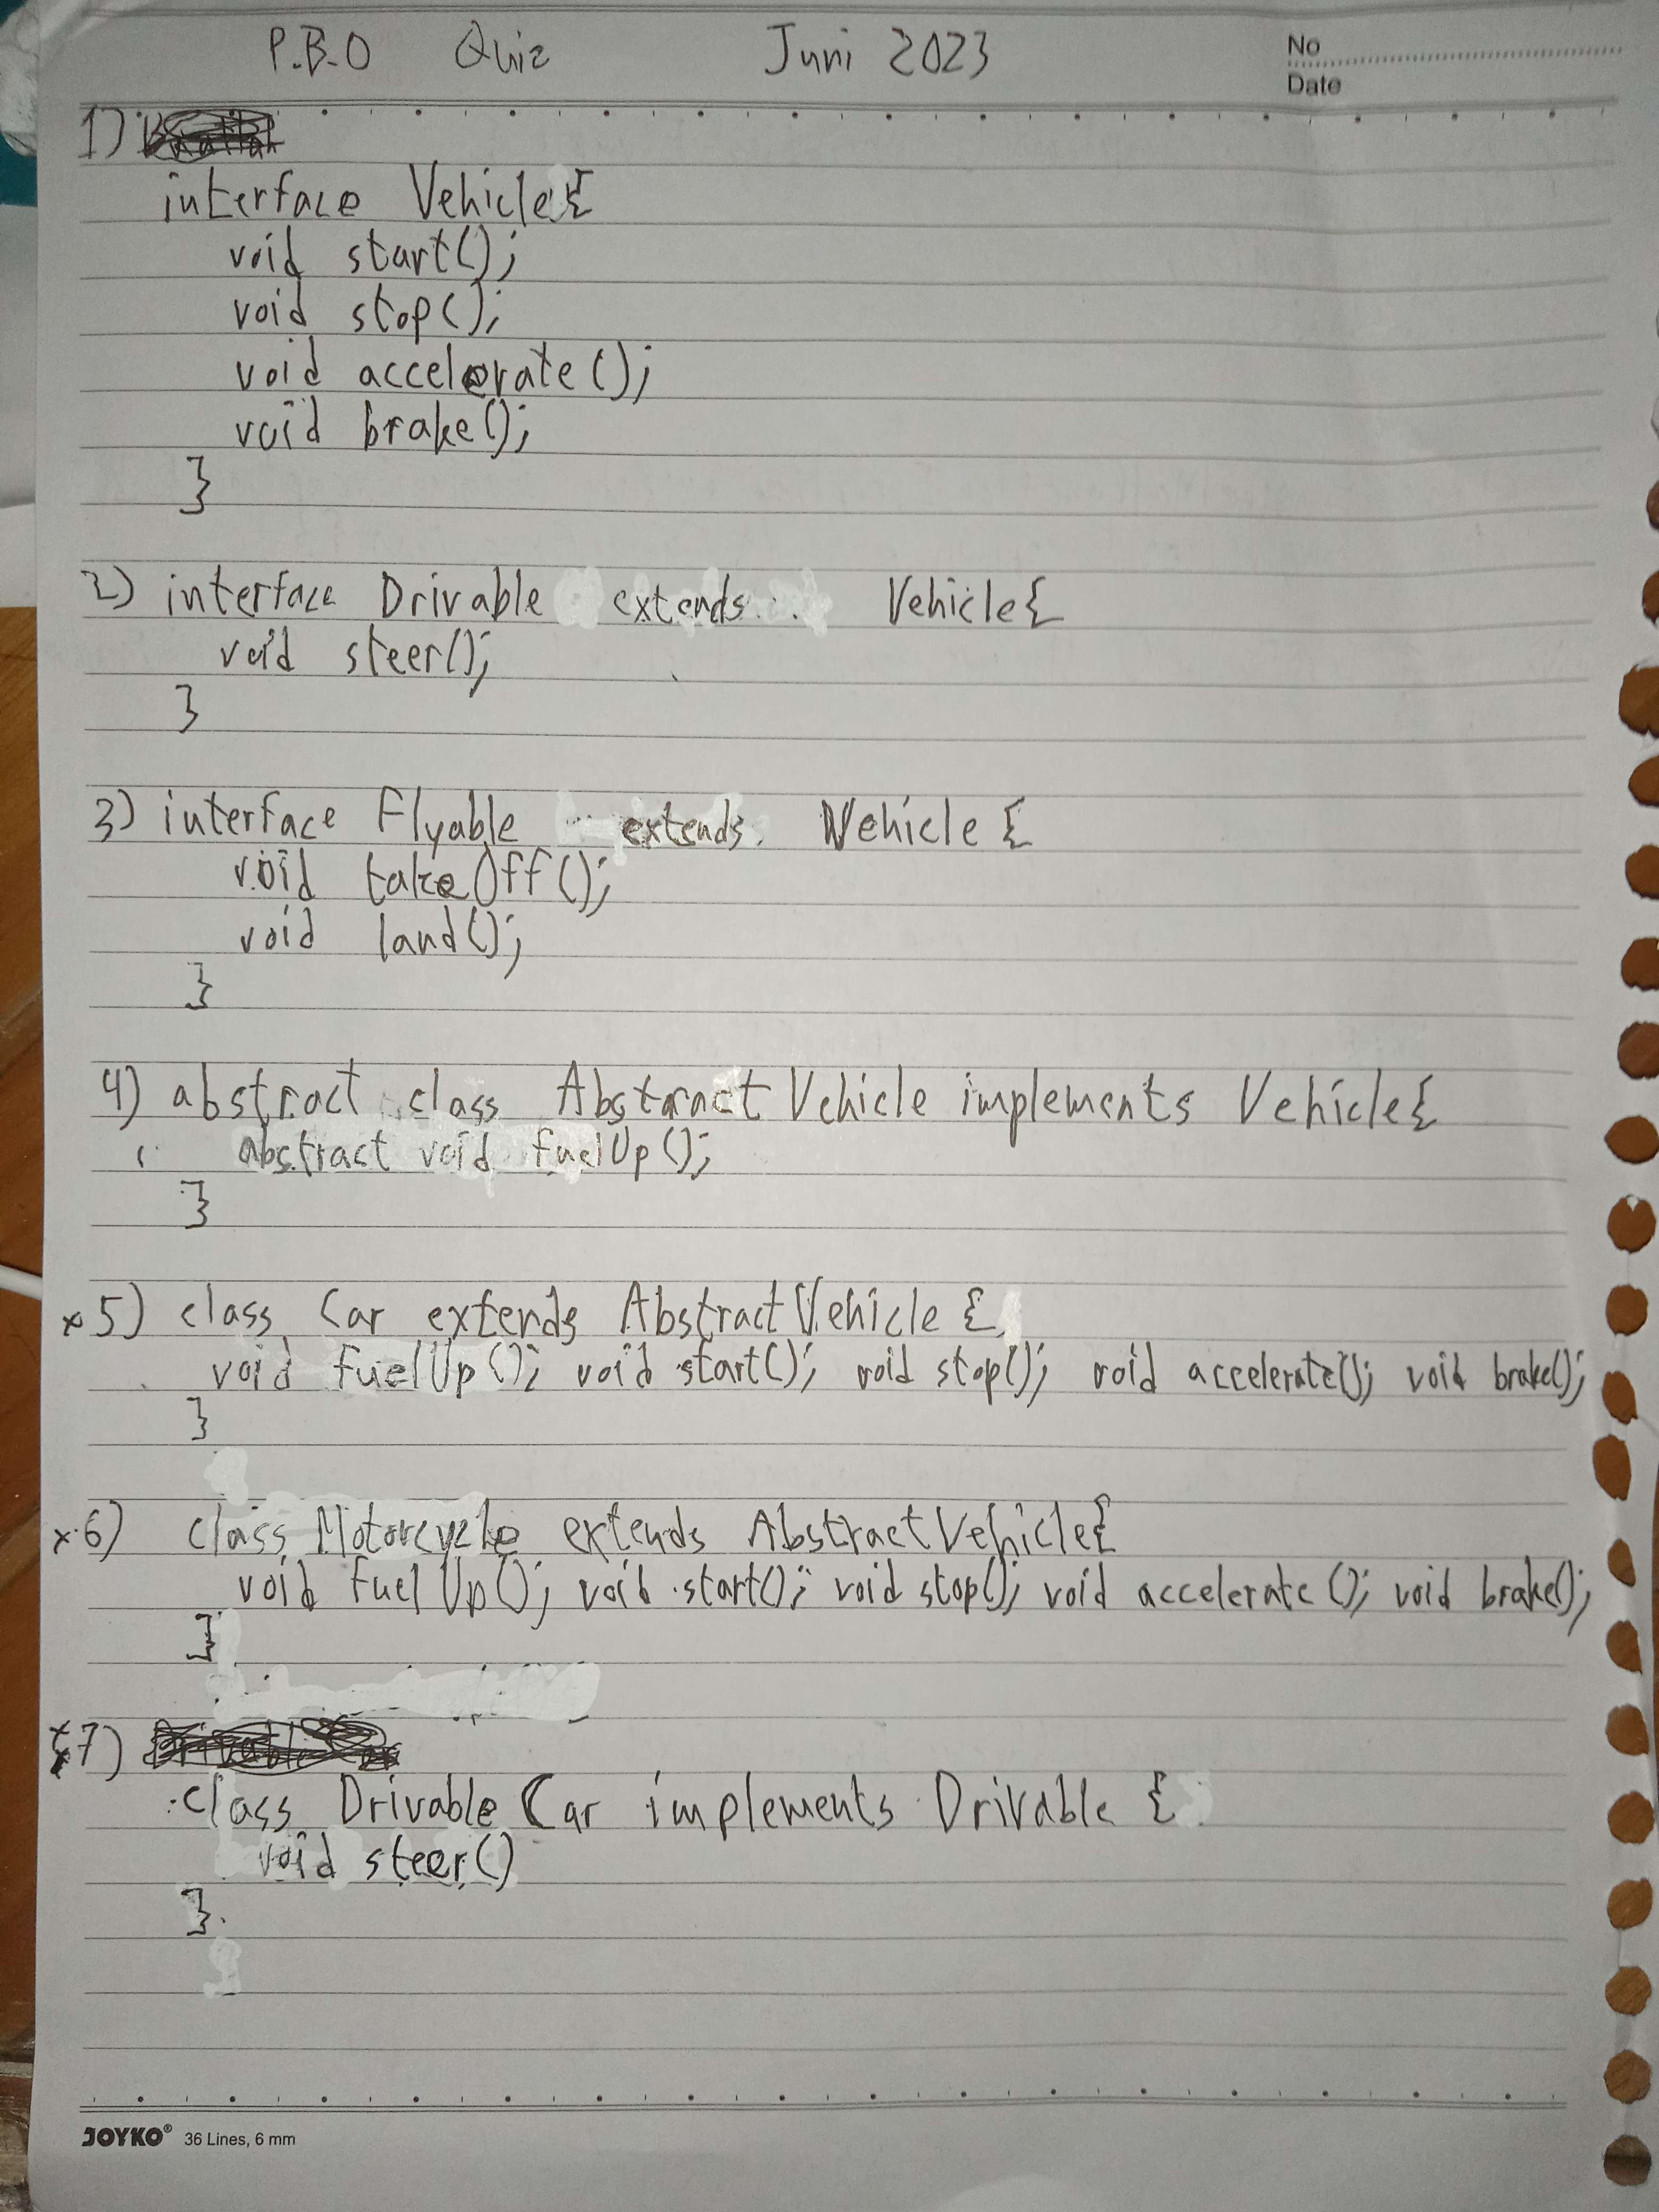 P.B.O Quiz Juni 2023
No
Date
1)
interface Vehicle{
void start();
void stop();
void accelerate();
void brake();
}
2) interface Drivable extends Vehicle{
void steer();
}
3) interface Flyable extends Vehicle {
void takeOff();
void land();
}
4) abstract class AbstractVehicle implements Vehicle{
abstract void fuelUp();
}
x5) class Car extends AbstractVehicle {
void fuelUp(); void start(); void stop(); void accelerate(); void brake();
}
x6) class Motorcycle extends AbstractVehicle{
void fuelUp(); void start(); void stop(); void accelerate(); void brake();
}
x7)
class Drivable Car implements Drivable {
void steer()
}
JOYKO® 36 Lines, 6 mm